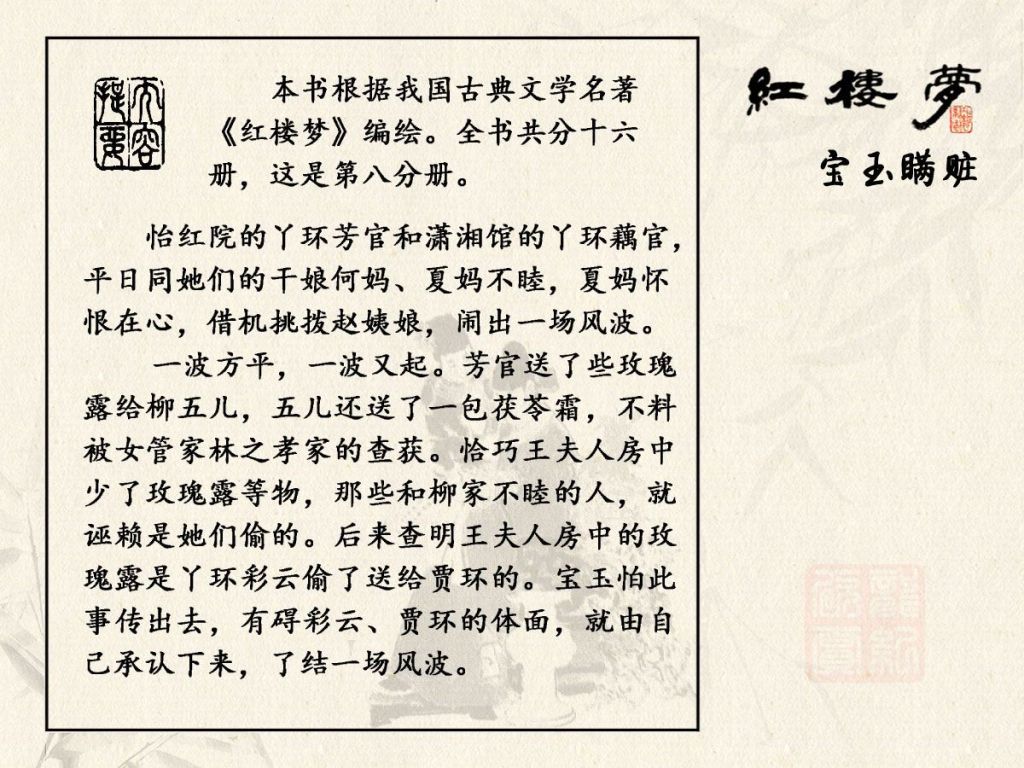 内容
提要
本书根据我国古典文学名著
《红楼梦》编绘。全书共分十六
册，这是第八分册。
怡红院的丫环芳官和潇湘馆的丫环藕官，
平日同她们的干娘何妈、夏妈不睦，夏妈怀
恨在心，借机挑拨赵姨娘，闹出一场风波。
一波方平，一波又起。芳官送了些玫瑰
露给柳五儿，五儿还送了一包茯苓霜，不料
被女管家林之孝家的查获。恰巧王夫人房中
少了玫瑰露等物，那些和柳家不睦的人，就
诬赖是她们偷的。后来查明王夫人房中的玫
瑰露是丫环彩云偷了送给贾环的。宝玉怕此
事传出去，有碍彩云、贾环的体面，就由自
己承认下来，了结一场风波。
紅樓夢
宝玉瞒赃